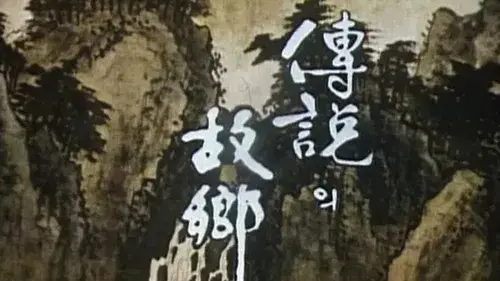 傳說의
故鄉